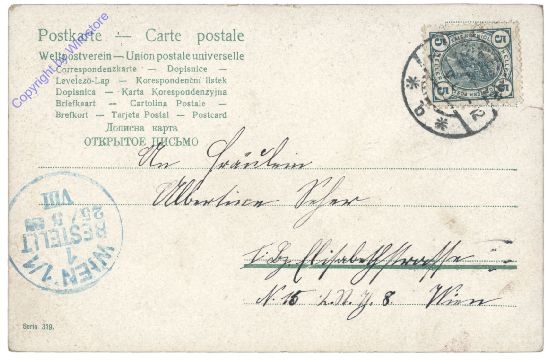 Postkarte — Carte postale
Weltpostverein — Union postale universelle
Correspondenzkarte — Dopisnice —
Levelező-Lap — Korespondenční lístek
Dopisnica — Karta Korespondenzyjna
Briefkaart — Cartolina Postale —
Brefkort — Tarjeta Postal — Postcard
Дописна карта
ОТКРЫТОЕ ПИСЬМО
Copyright by WinStore
5 5
5 5
An Fräulein
Albertine Seher
Elisabethstrasse
N. 15 Wien
WIEN 1/1
BESTELLT
VIII
Serie 319.